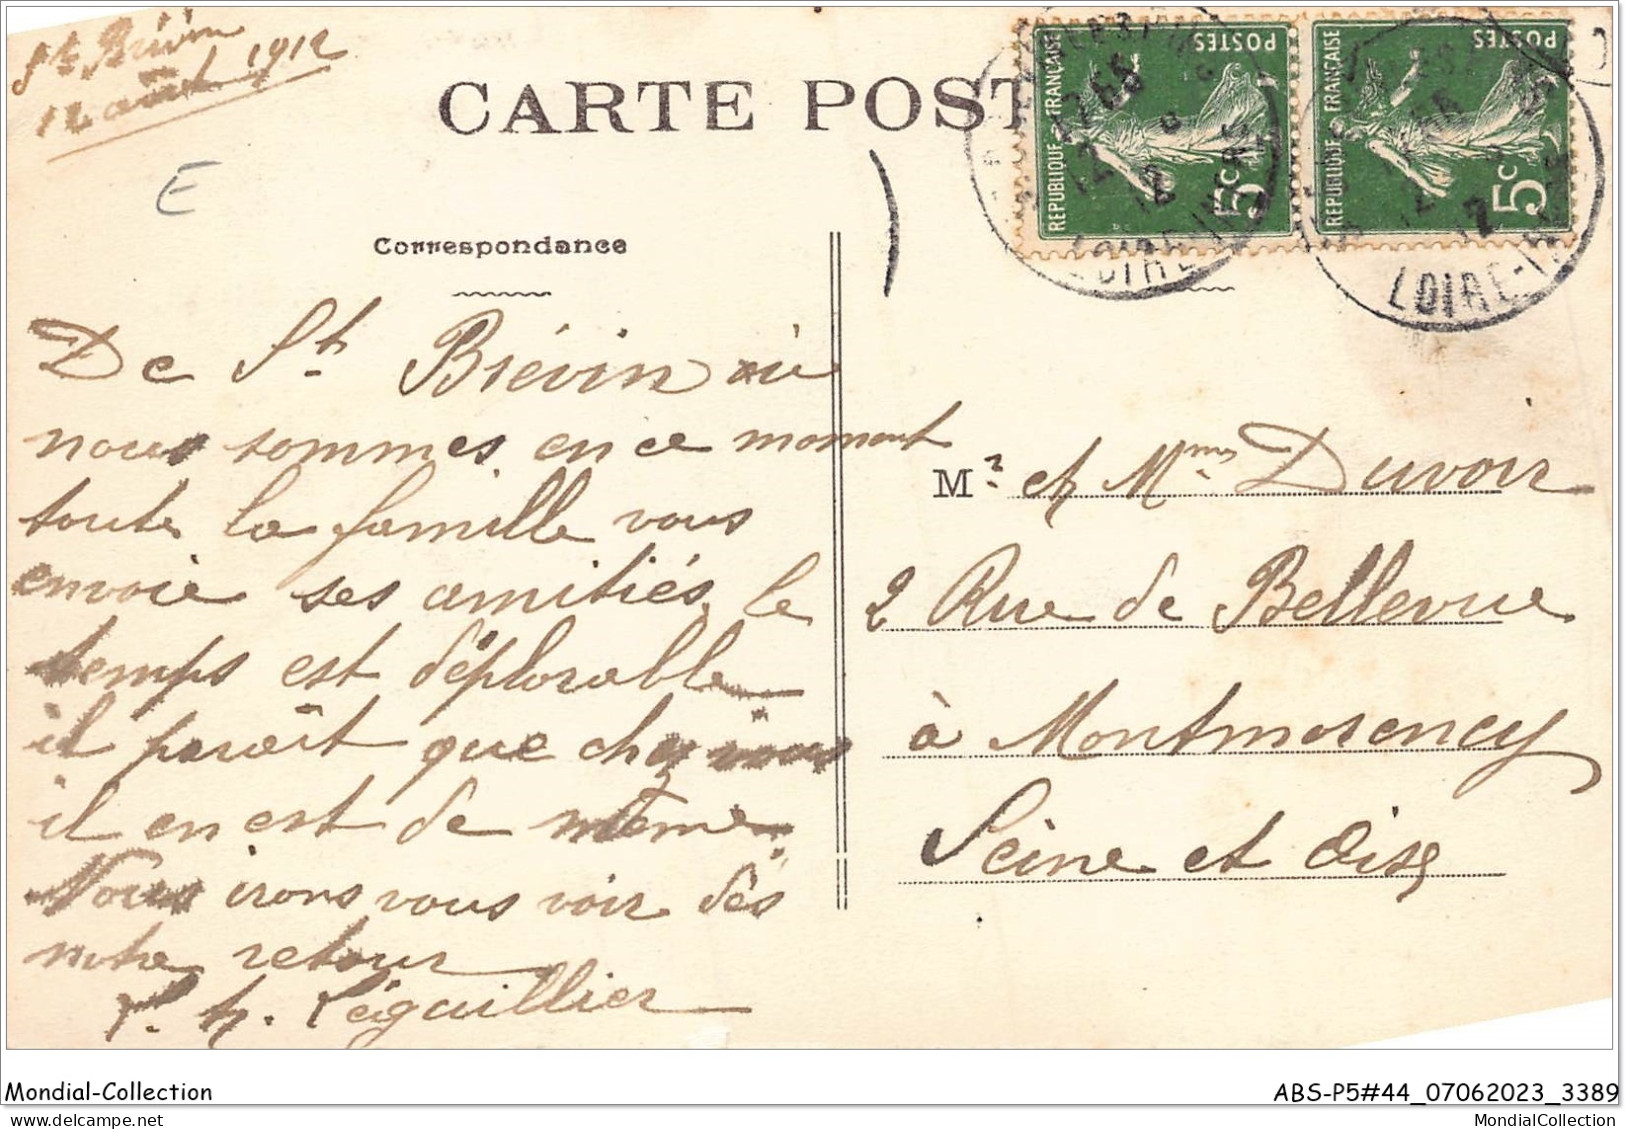 St Brévin
12 août 1912
E
CARTE POST
RÉPUBLIQUE FRANÇAISE
POSTES
5c
RÉPUBLIQUE FRANÇAISE
POSTES
5c
12 55
12 - 8
12
LOIRE
LOIRE-IN
Correspondance
De St. Brévin où
nous sommes en ce moment
toute la famille vous
envoie ses amitiés, le
temps est déplorable
il paraît que chez vous
il en est de même.
Nous irons vous voir dès
notre retour
Légaillier
Mr. et Mme Duvoir
2 Rue de Bellevue
à Montmorency
Seine et Oise
Mondial-Collection
ABS-P5#44_07062023_3389
MondialCollection